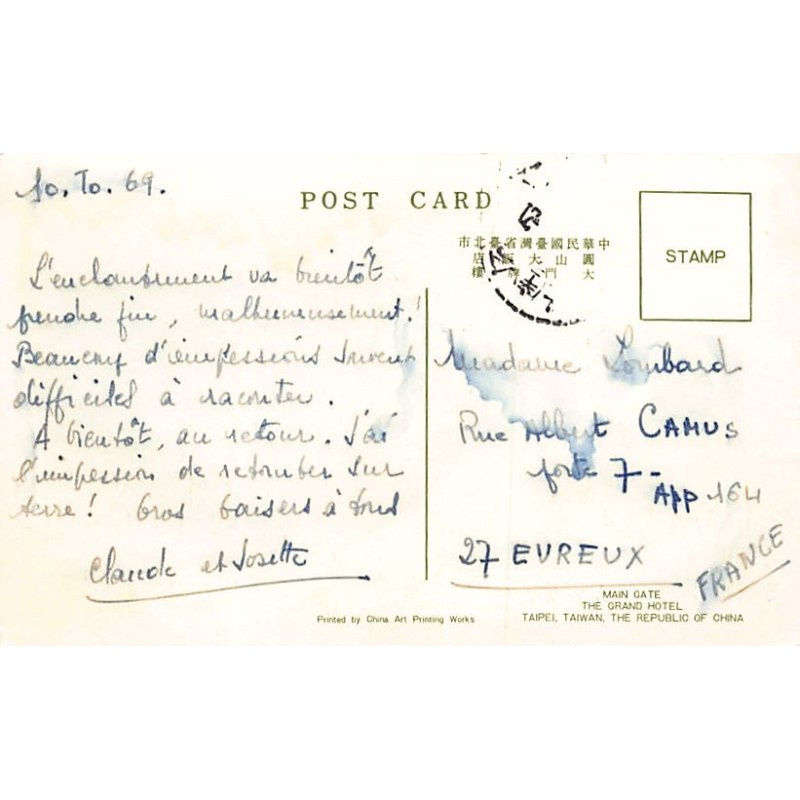 10.10.69.
POST CARD
中華民國臺灣省臺北市
圓山大飯店
大門牌樓
STAMP
L'enchantement va bientôt
prendre fin, malheureusement!
Beaucoup d'impressions souvent
difficiles à raconter.
A bientôt, au retour. J'ai
l'impression de retomber sur
terre! Gros baisers à tous
Claude et Josette
Madame Lombard
Rue Albert CAMUS
porte 7 -
App 164
27 EVREUX
FRANCE
MAIN GATE
THE GRAND HOTEL
TAIPEI, TAIWAN, THE REPUBLIC OF CHINA
Printed by China Art Printing Works